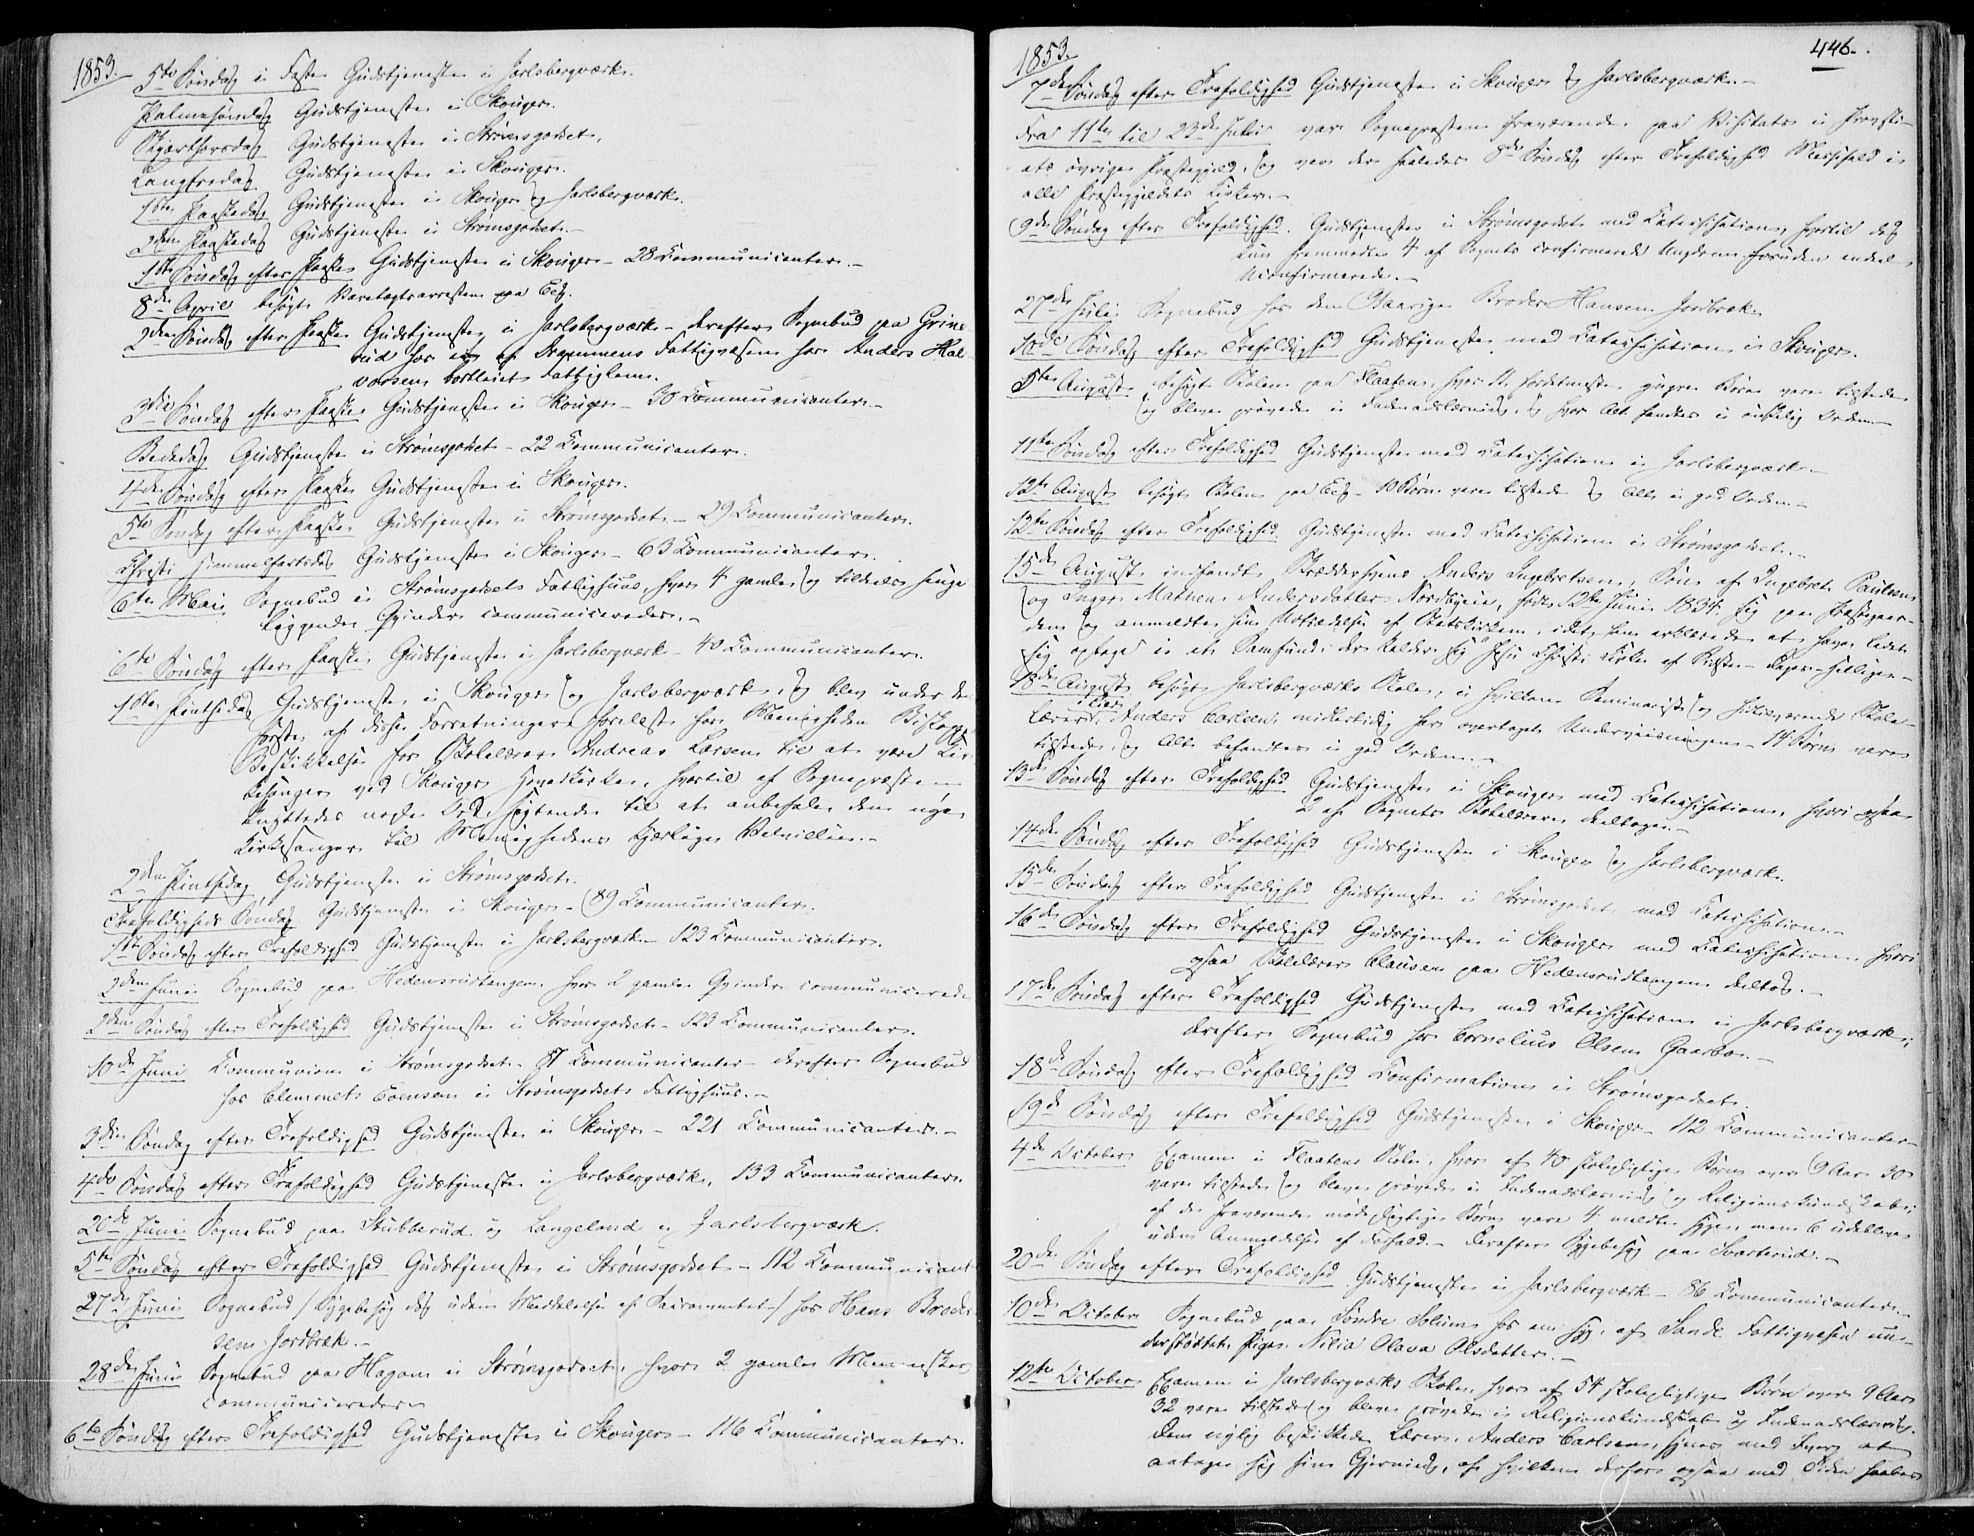 1853.
5te Søndag i Faste Gudstjeneste i Jarlsbergværk.
Palmesøndag Gudstjeneste i Skouger.
Skjærthorsdag Gudstjeneste i Strømsgodset.
Langfredag Gudstjeneste i Skouger.
1ste Paaskedag Gudstjeneste i Skouger og Jarlsbergværk.
2den Paaskedag Gudstjeneste i Strømsgodset.-
1ste Søndag efter Paaske Gudstjeneste i Skouger - 28 Communicanter.-
8de April besøgt Varetægtsarresten paa Eeg.
2den Søndag efter Paaske Gudstjeneste i Jarlsbergværk - derefter Sognebud paa Grine-
rud hos et af Drammens Fattigvæsen hos Anders Hal-
vorsen bortleiet Fattiglem.
3die Søndag efter Paaske Gudstjeneste i Skouger - 30 Communicanter.-
Bededag Gudstjeneste i Strømsgodset - 22 Communicanter.
4de Søndag efter Paaske Gudstjeneste i Skouger.
5te Søndag efter Paaske Gudstjeneste i Strømsgodset - 29 Communicanter.
Christi Himmelfartsdag Gudstjeneste i Skouger - 63 Communicanter.
6te Mai Sognebud i Strømsgodsets Fattighuus, hvor 4 gamle og tildeels senge-
liggende Qvinder communicerede.-
6te Søndag efter Paaske Gudstjeneste i Jarlsbergværk - 40 Communicanter.
1ste Pintsedag Gudstjeneste i Skouger og Jarlsbergværk, og blev under den
første af disse Forretninger forelæst for Menigheden Biskoppens
Beskikkelse for Skolelærer Andreas Larsen til at være Kir-
kesanger ved Skouger Hovedkirke, hvortil af Sognepræsten
knyttedes nogle Ord sigtende til at anbefale den nye
Kirkesanger til Menighedens kjærlige Velvillie.-
2den Pintsedag Gudstjeneste i Strømsgodset.
Trefoldigheds Søndag Gudstjeneste i Skouger - 89 Communicanter.
1ste Søndag efter Trefoldighed Gudstjeneste i Jarlsbergværk - 123 Communicanter.
2den Juni Sognebud paa Hedensrudtangen, hvor 2 gamle Qvinder communicerede
2den Søndag efter Trefoldighed Gudstjeneste i Strømsgodset - 123 Communicanter.
10de Juni Communion i Strømsgodset - 81 Communicanter - derefter Sognebud
hos Clemmet Evensen i Strømsgodsets Fattighuus.-
3die Søndag efter Trefoldighed Gudstjeneste i Skouger - 221 Communicanter.-
4de Søndag efter Trefoldighed Gudstjeneste i Jarlsbergværk, 133 Communicanter.
20de Juni Sognebud paa Stubberud og Langeland i Jarlsbergværk.
5te Søndag efter Trefoldighed Gudstjeneste i Strømsgodset - 112 Communicant
27de Juni Sognebud /Sygebesøg dog uden Meddelelse af Sacramentet/ hos Hans Broder-
sen Jordbræk.-
28de Juni Sognebud paa Hagen i Strømsgodset, hvor 2 gamle Mennesker
communicerede.
6te Søndag efter Trefoldighed Gudstjeneste i Skouger - 116 Communicanter.
1853.
446.
7de Søndag efter Trefoldighed Gudstjeneste i Skouger og Jarlsbergværk.-
Fra 11te til 23de Juli var Sognepræsten fraværende paa Visitats i Provsti-
ets øvrige Præstegjeld, og var der saaledes 8de Søndag efter Trefoldighed Messefald i
alle Præstegjeldets Kirker.-
9de Søndag efter Trefoldighed. Gudstjeneste i Strømsgodset med Catechisation, hvortil dog
kun fremmødte 4 af Sognets confirmerede Ungdom foruden endeel
Uconfirmerede.-
27de Juli Sognebud hos den aarige Broder Hansen Jordbræk.
10de Søndag efter Trefoldighed Gudstjeneste med Catechisation i Skouger.
5te August besøgt Skolen paa Flaaten, hvor 11 fordetmeste yngre Børn vare tilstede
og bleve prøvede i Indenadslæsning, og hvor Alt fandtes i ønskelig Orden
11te Søndag efter Trefoldighed Gudstjeneste med Catechisation i Jarlsbergværk.-
12te August besøgt Skolen paa Eeg - 10 Børn vare tilstede og Alt i god Orden.-
12te Søndag efter Trefoldighed. Gudstjeneste med Catechisation i Strømsgodset.-
15de August indfandt Skræddersvend Anders Ingebretsen, Søn af Ingebret Paulsen
og Inger Mathea Andersdatter Nordbyeie, født 12te Juni 1834, sig paa Præstegaar-
den og anmeldte sin Udtrædelse af Statskirken, idet han erklærede at have ladet
sig optage i et Samfund, der kalder sig Jesu Christi Kirke af Sidste-Dages-Hellige.-
18de August besøgt Jarlsbergværks Skole, i hvilken Seminarist og hidtilværende Skole-
lærer Anders Carlsen midlertidig har overtaget Underviisningen - 14 Børn vare
tilstede, og Alt befandtes i god Orden.-
13de Søndag efter Trefoldighed Gudstjeneste i Skouger med Catechisation, hvori ogsaa
2 af Sognets Skolelærere deeltoge.-
14de Søndag efter Trefoldighed Gudstjeneste i Skouger og Jarlsbergværk.
15de Søndag efter Trefoldighed Gudstjeneste i Strømsgodset med Catechisation.-
16de Søndag efter Trefoldighed Gudstjeneste i Skouger med Catechisation, hvori
ogsaa Skolelærer Clausen paa Hedensrudtangen deeltog.-
17de Søndag efter Trefoldighed Gudstjeneste med Catechisation i Jarlsbergværk;
derefter Sognebud hos Cornelius Olsen Gaarbo.-
18de Søndag efter Trefoldighed Confirmation i Strømsgodset.
19de Søndag efter Trefoldighed Gudstjeneste i Skouger - 112 Communicanter
4de October Examen i Flaatens Skole, hvor af 40 skolepligtige Børn over 9 Aar 30
vare tilstede og bleve prøvede i Indenadslæsning og Religionskundskab;
af de fraværende mødepligtige Børn vare 4 meldte syge, men 6 udebleve
uden Anmeldelse af Forfald.- Derefter Sygebesøg paa Svarterud.-
20de Søndag efter Trefoldighed Gudstjeneste i Jarlsbergværk - 86 Communicanter.-
10de October Sognebud paa Søndre Solum hos en syg, af Sande Fattigvæsen un-
derstøttet Pige, Nilia Olava Olsdatter.-
12te October Examen i Jarlsbergværks Skole, hvor af 54 skolepligtige Børn over 9 Aar
32 vare tilstede og bleve prøvede i Religionskundskab og Indenadslæsning.
Den nylig beskikkede Lærer, Anders Carlsen, synes med Iver at
antage sig sin Gjerning, af hvilken derfor ogsaa med Tiden haabes